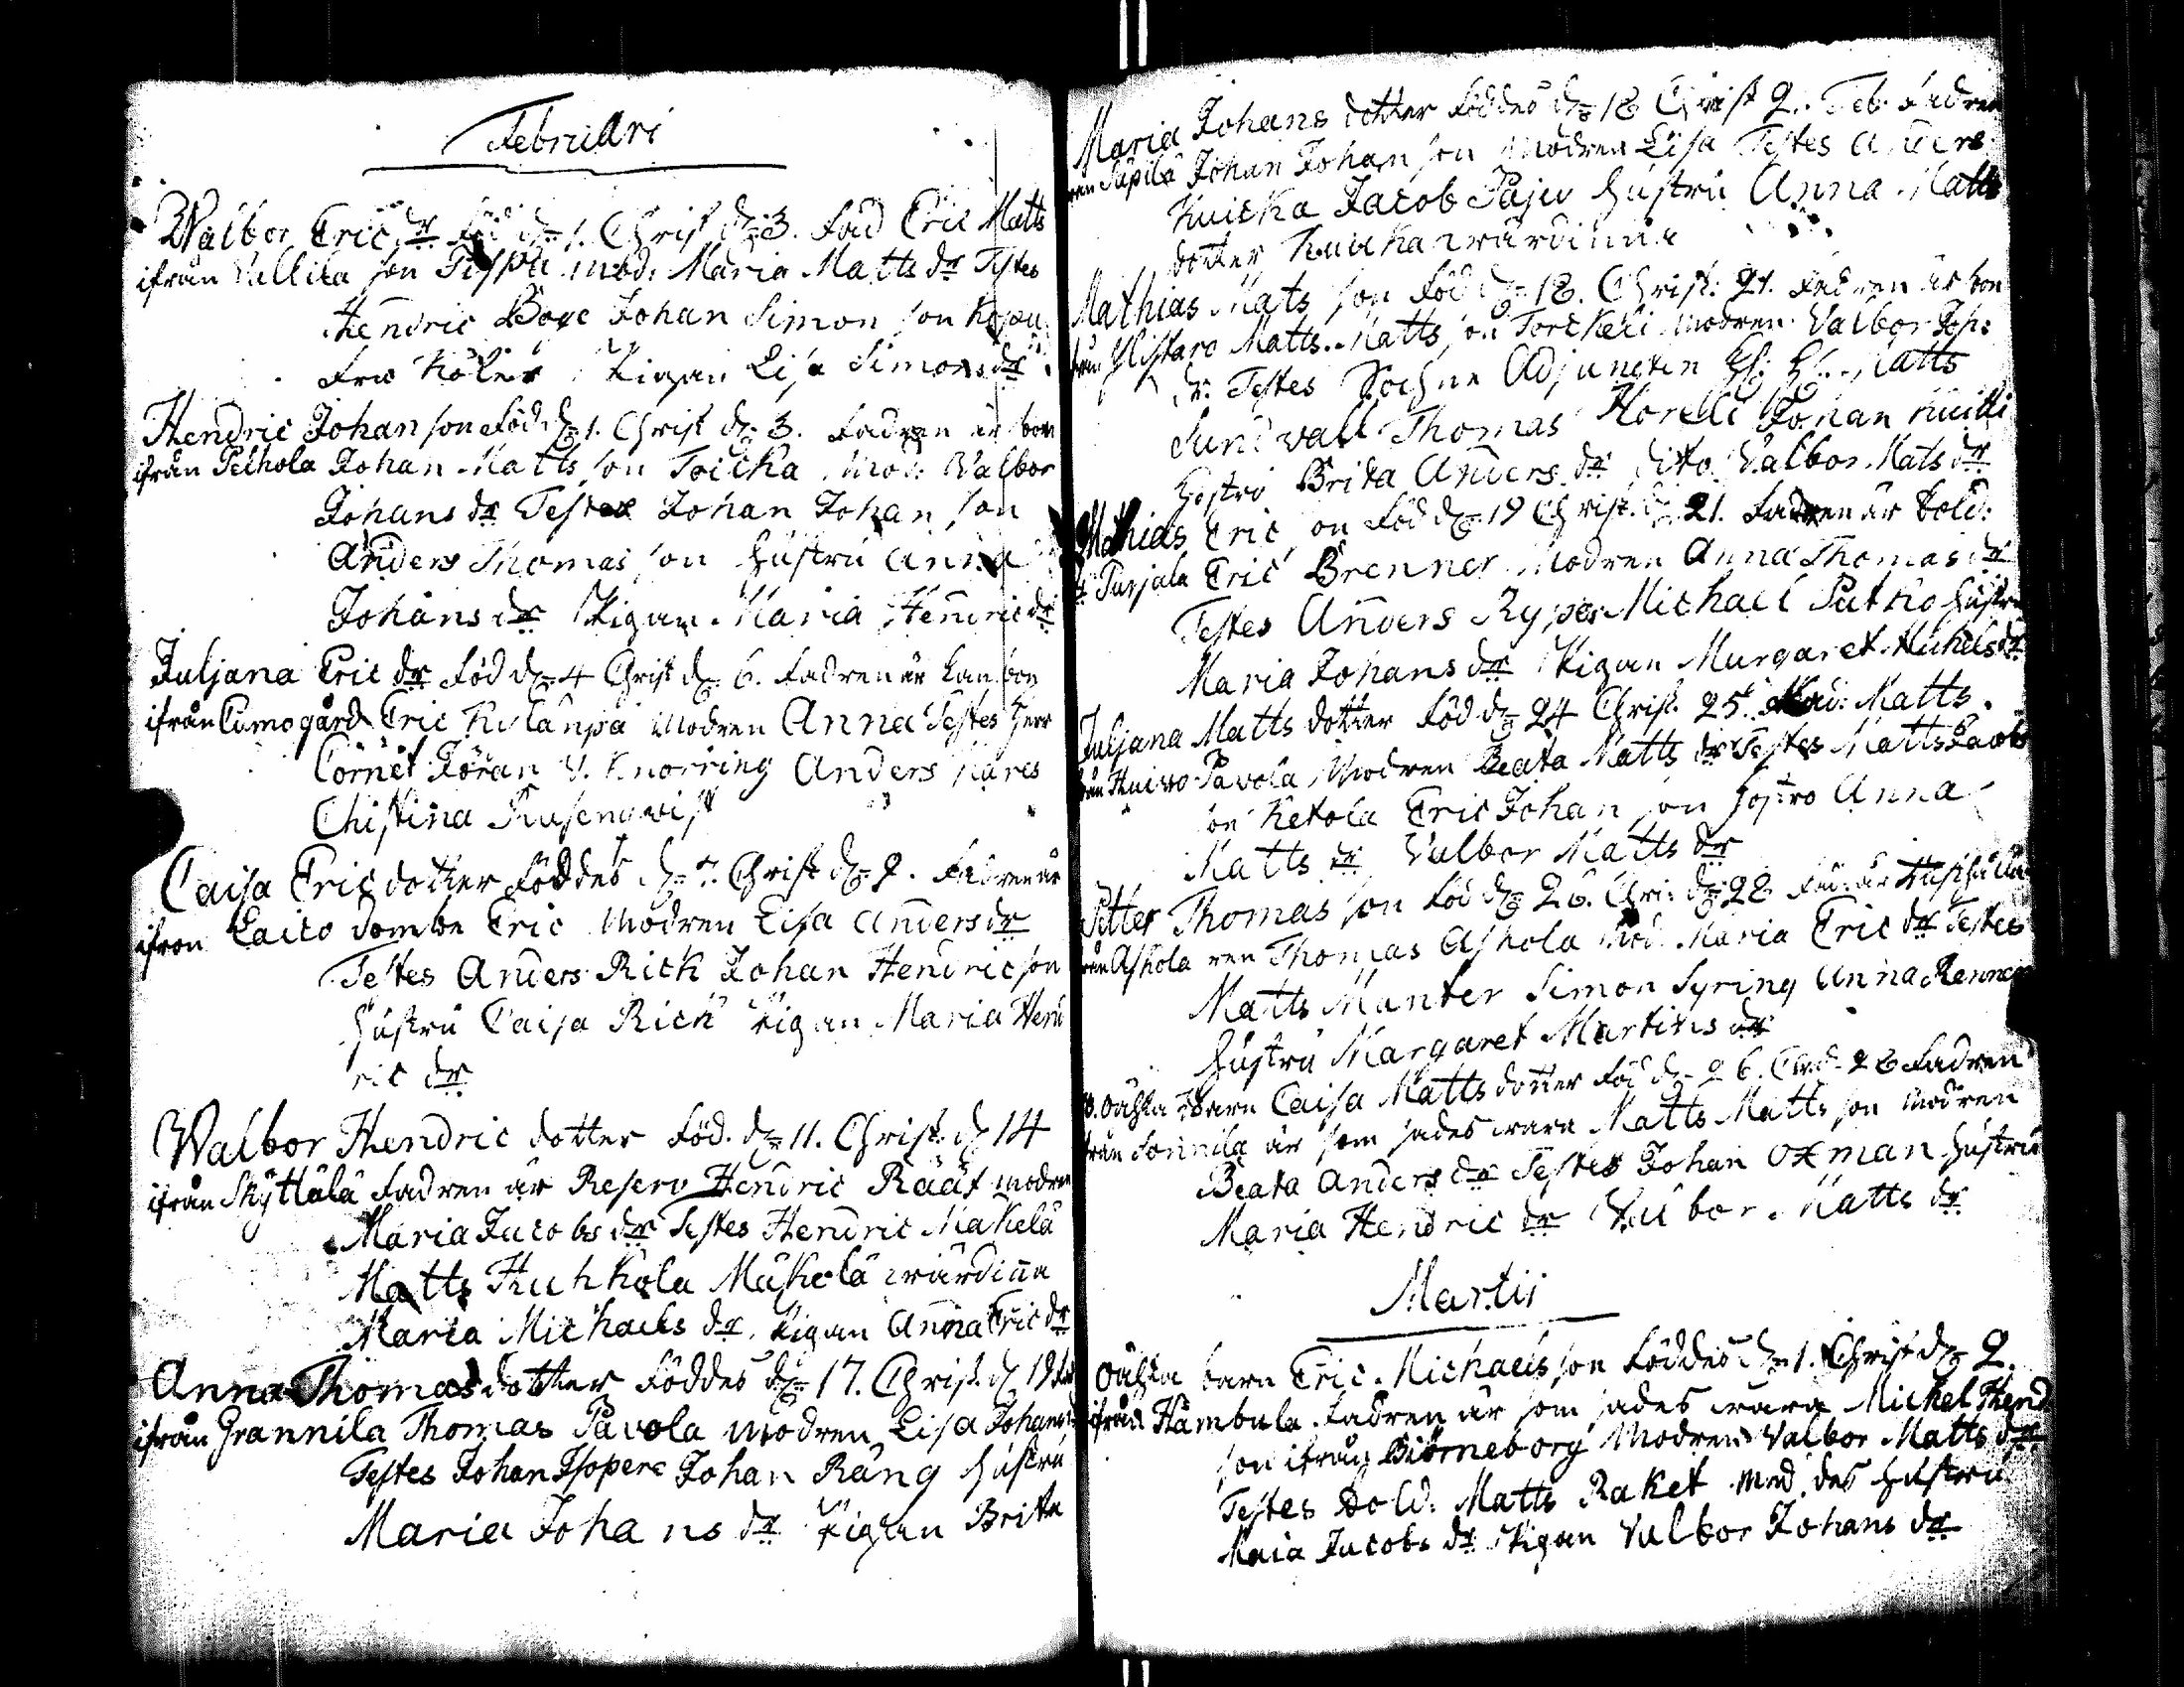 Februari
Walbor Eric dr Föd d. 1. Christ d. 3. Fad Eric Matts
ifrån Vallila son Seppä mod: Maria Matts dr Testes
Hendric Boge Johan Simon son
Fru Pigan Lisa Simons dr
Hendric Johan son Föd d. 1. Christ d. 3. Fadren är bon
ifrån Pelhola Johan Matts son Toicka Mod: Valbor
Johans dr Testes Johan Johan son
Anders Thomas son hustru Anna
Johans dr Pigan Maria Hendric dr
Juljana Eric dr Föd d. 4 Christ d. 6. Fadren är Lanbon
ifrån Cumogård Eric Kylänpä Modren Anna Testes Herr
Cornet Jöran V. Knorring Anders Kares
Chistina Rusenqwist
Caisa Eric dotter Föddes d. 7. Christ d. 9. Fadren är
ifron Laico Eric Modren Lisa Anders dr
Testes Anders Rick Johan Hendric son
Hustru Caisa Rick Pigan Maria Hend
ric dr
Walbor Hendric dotter Föd. d. 11. Christ. d 14
ifrån Skyttälä Fadren är Reserv Hendric Räät modren
Maria Jacobs dr Testes Hendric Makelä
Matts Huhkola Mäkelä wärdinna
Maria Michaels dr. Pigan Anna Eric dr
Anna Thomas dotter Föddes d. 17. Christ. d 19
ifrån Grannila Thomas Pavola Modren Lisa Johans
Testes Johan Isopere Johan Räng hustru
Maria Johans dr Pigan Brita
Maria Johans dotter Föddes d. 18 Christ 2. Feb. Fadren
Säpilä Johan Johan son Modren Lisa Testes Anders
Kuicka Jacob Paju hustru Anna Matts
dotter Kuicka wärdinna
Mathias Mats son Föd d. 18. Christ: 21. Fadren är bon
Ylistaro Matts Matts son Torckeli Modren Valbor Joh:
dr: Testes Sochne Adjuncten Hl: Hr. Matts
Sundwall Thomas Florelli Johan
Hostro Brita Anders dr dito Valbor Mats dr
Mathias Eric son Föd d. 19 Christ. d. 21. Fadren är Sold:
Purjala Eric Brenner Modren Anna Thomas dr
Testes Anders Ryper Michael Putko hustru
Maria Johans dr Pigan Margaret Michels dr
Juljana Matts dotter Föd d. 24 Christ. 25. Fad: Matts
Huivo Pavola Modren Beata Matts dr Testes Matts Jacobs
son Ketola Eric Johan son Hostro Anna
Matts dr Valbor Matts dr
Petter Thomas son Föd d. 26. Chri: d. 28 Fad: är Hushålla
Askola ren Thomas Askola Mod. Maria Eric dr Testes
Matts Manter Simon Syring Anna Renner
Hustru Margaret Martins dr
Oächta Barn Caisa Matts dotter Föd d. 26. Christ 28 Fadren
från Sonnila är som sades wara Matts Matts son Modren
Beata Anders dr Testes Johan Oxman hustru
Maria Hendric dr Valbor Matts dr
Martii
Oächta barn Eric Michaels son Föddes d. 1. Christ d. 2.
ifrån Hämbula Fadren är som sades wara Michel Hend
son ifrån Biörneborg Modren Valbor Matts dr
Testes Sold: Matts Raket med des hustru
Maia Jacobs dr Pigan Valbor Johans dr